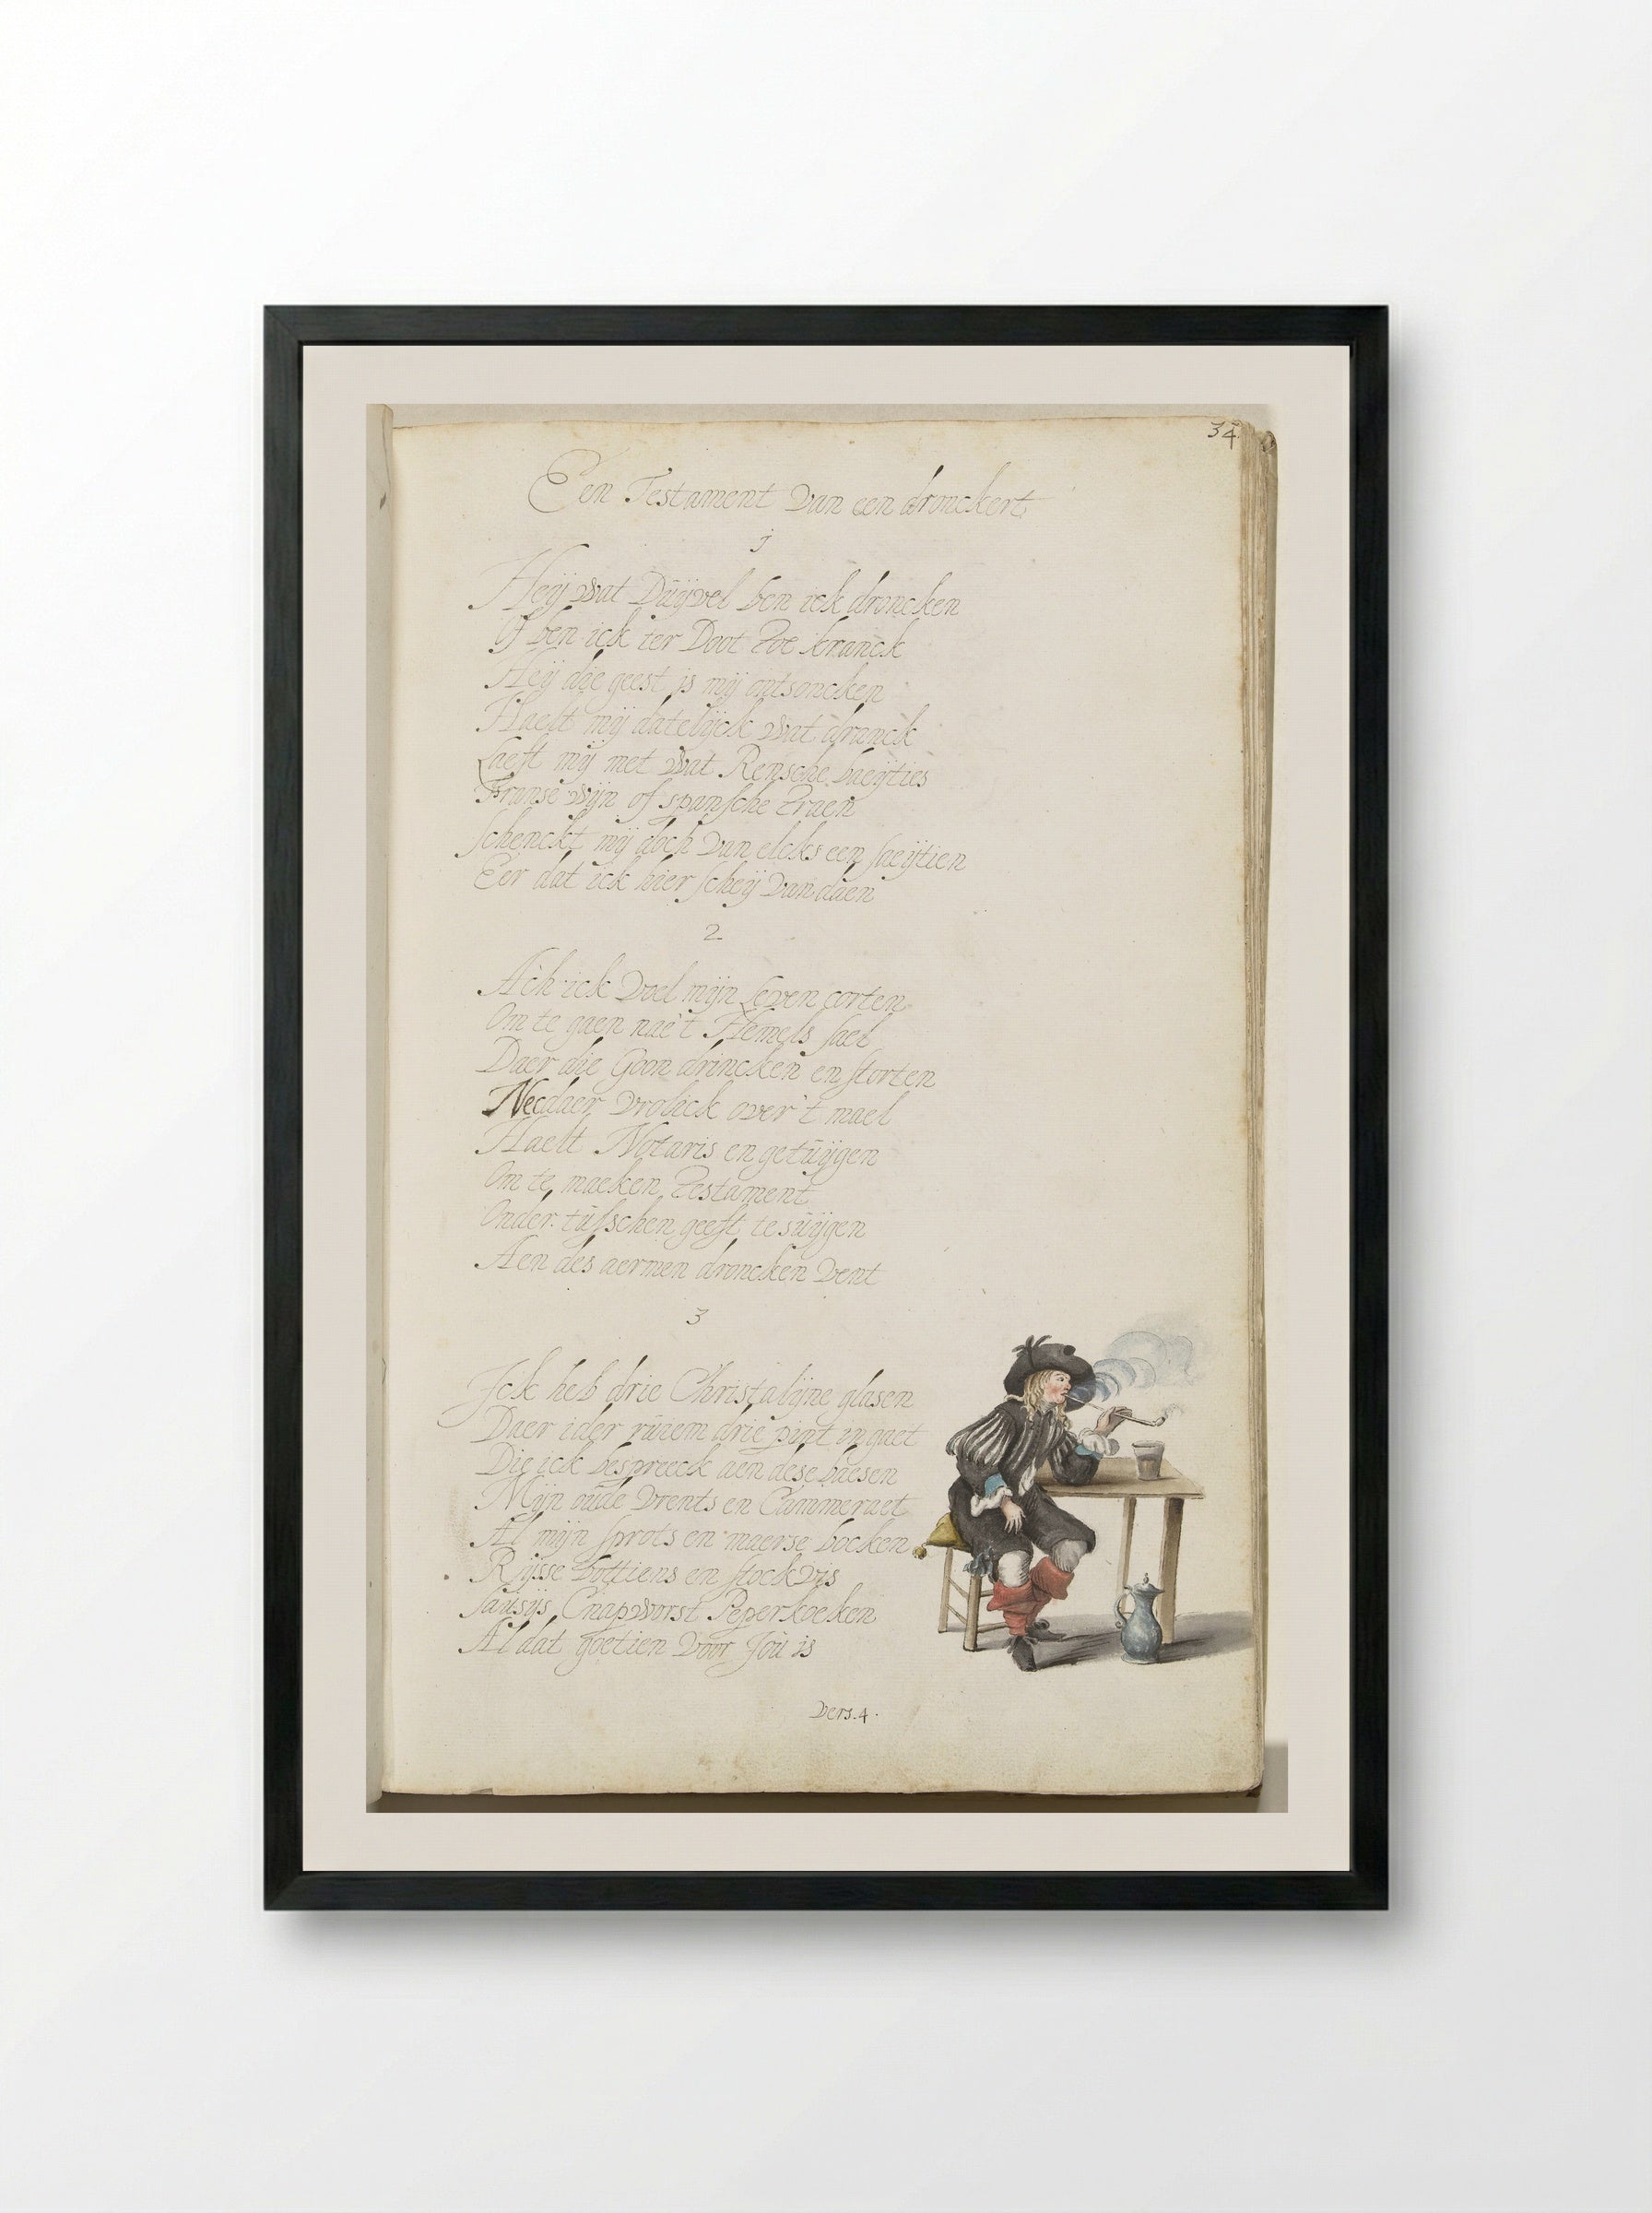 34.
Een Testament van een dronckert
1
Heij wat Duijvel ben ick droncken
Of ben ick ter Doot zoe kranck
Heij die geest is mij ontsoncken
Haelt mij datelijck wat dranck
Laeft mij met wat Rensche baeijties
Franse wijn of spansche traen
schenckt mij doch van elcks een saeijtien
Eer dat ick hier scheij van daen
2
Ach ick voel mijn Leven corten
Om te gaen nae't Hemels sael
Daer die Goon drincken en storten
Necdaer vrolick over't mael
Haelt Notaris en getuijgen
Om te maeken Testament
Onder tusschen geeft te suijgen
Aen des aermen droncken vent
3
Ick heb drie Christalijne glasen
Daer ider ruiem drie pint in gaet
Die ick bespreeck aen dese baesen
Mijn oude vrents en Cammeraet
Al mijn sprots en maerse bocken
Rijsse bottiens en stockvis
sausijs Cnapworst Peperkoeken
Al dat goetien voor Jou is
vers.4.